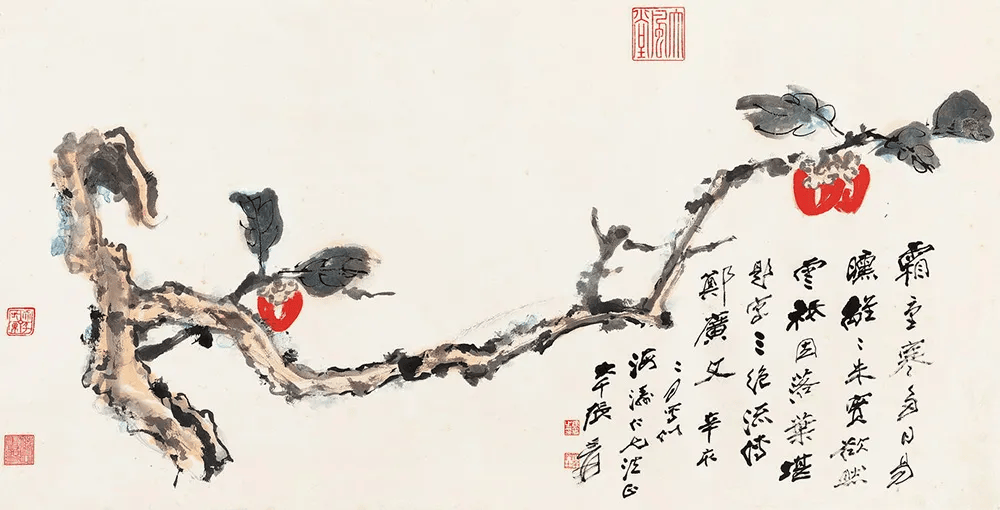 大風堂
霜重寒多日易
曛離〻朱實欲然
雲祇因落葉堪
題字三絕流傳
鄭廣文 辛亥
二月寫似
仁兄法正
大千張爰